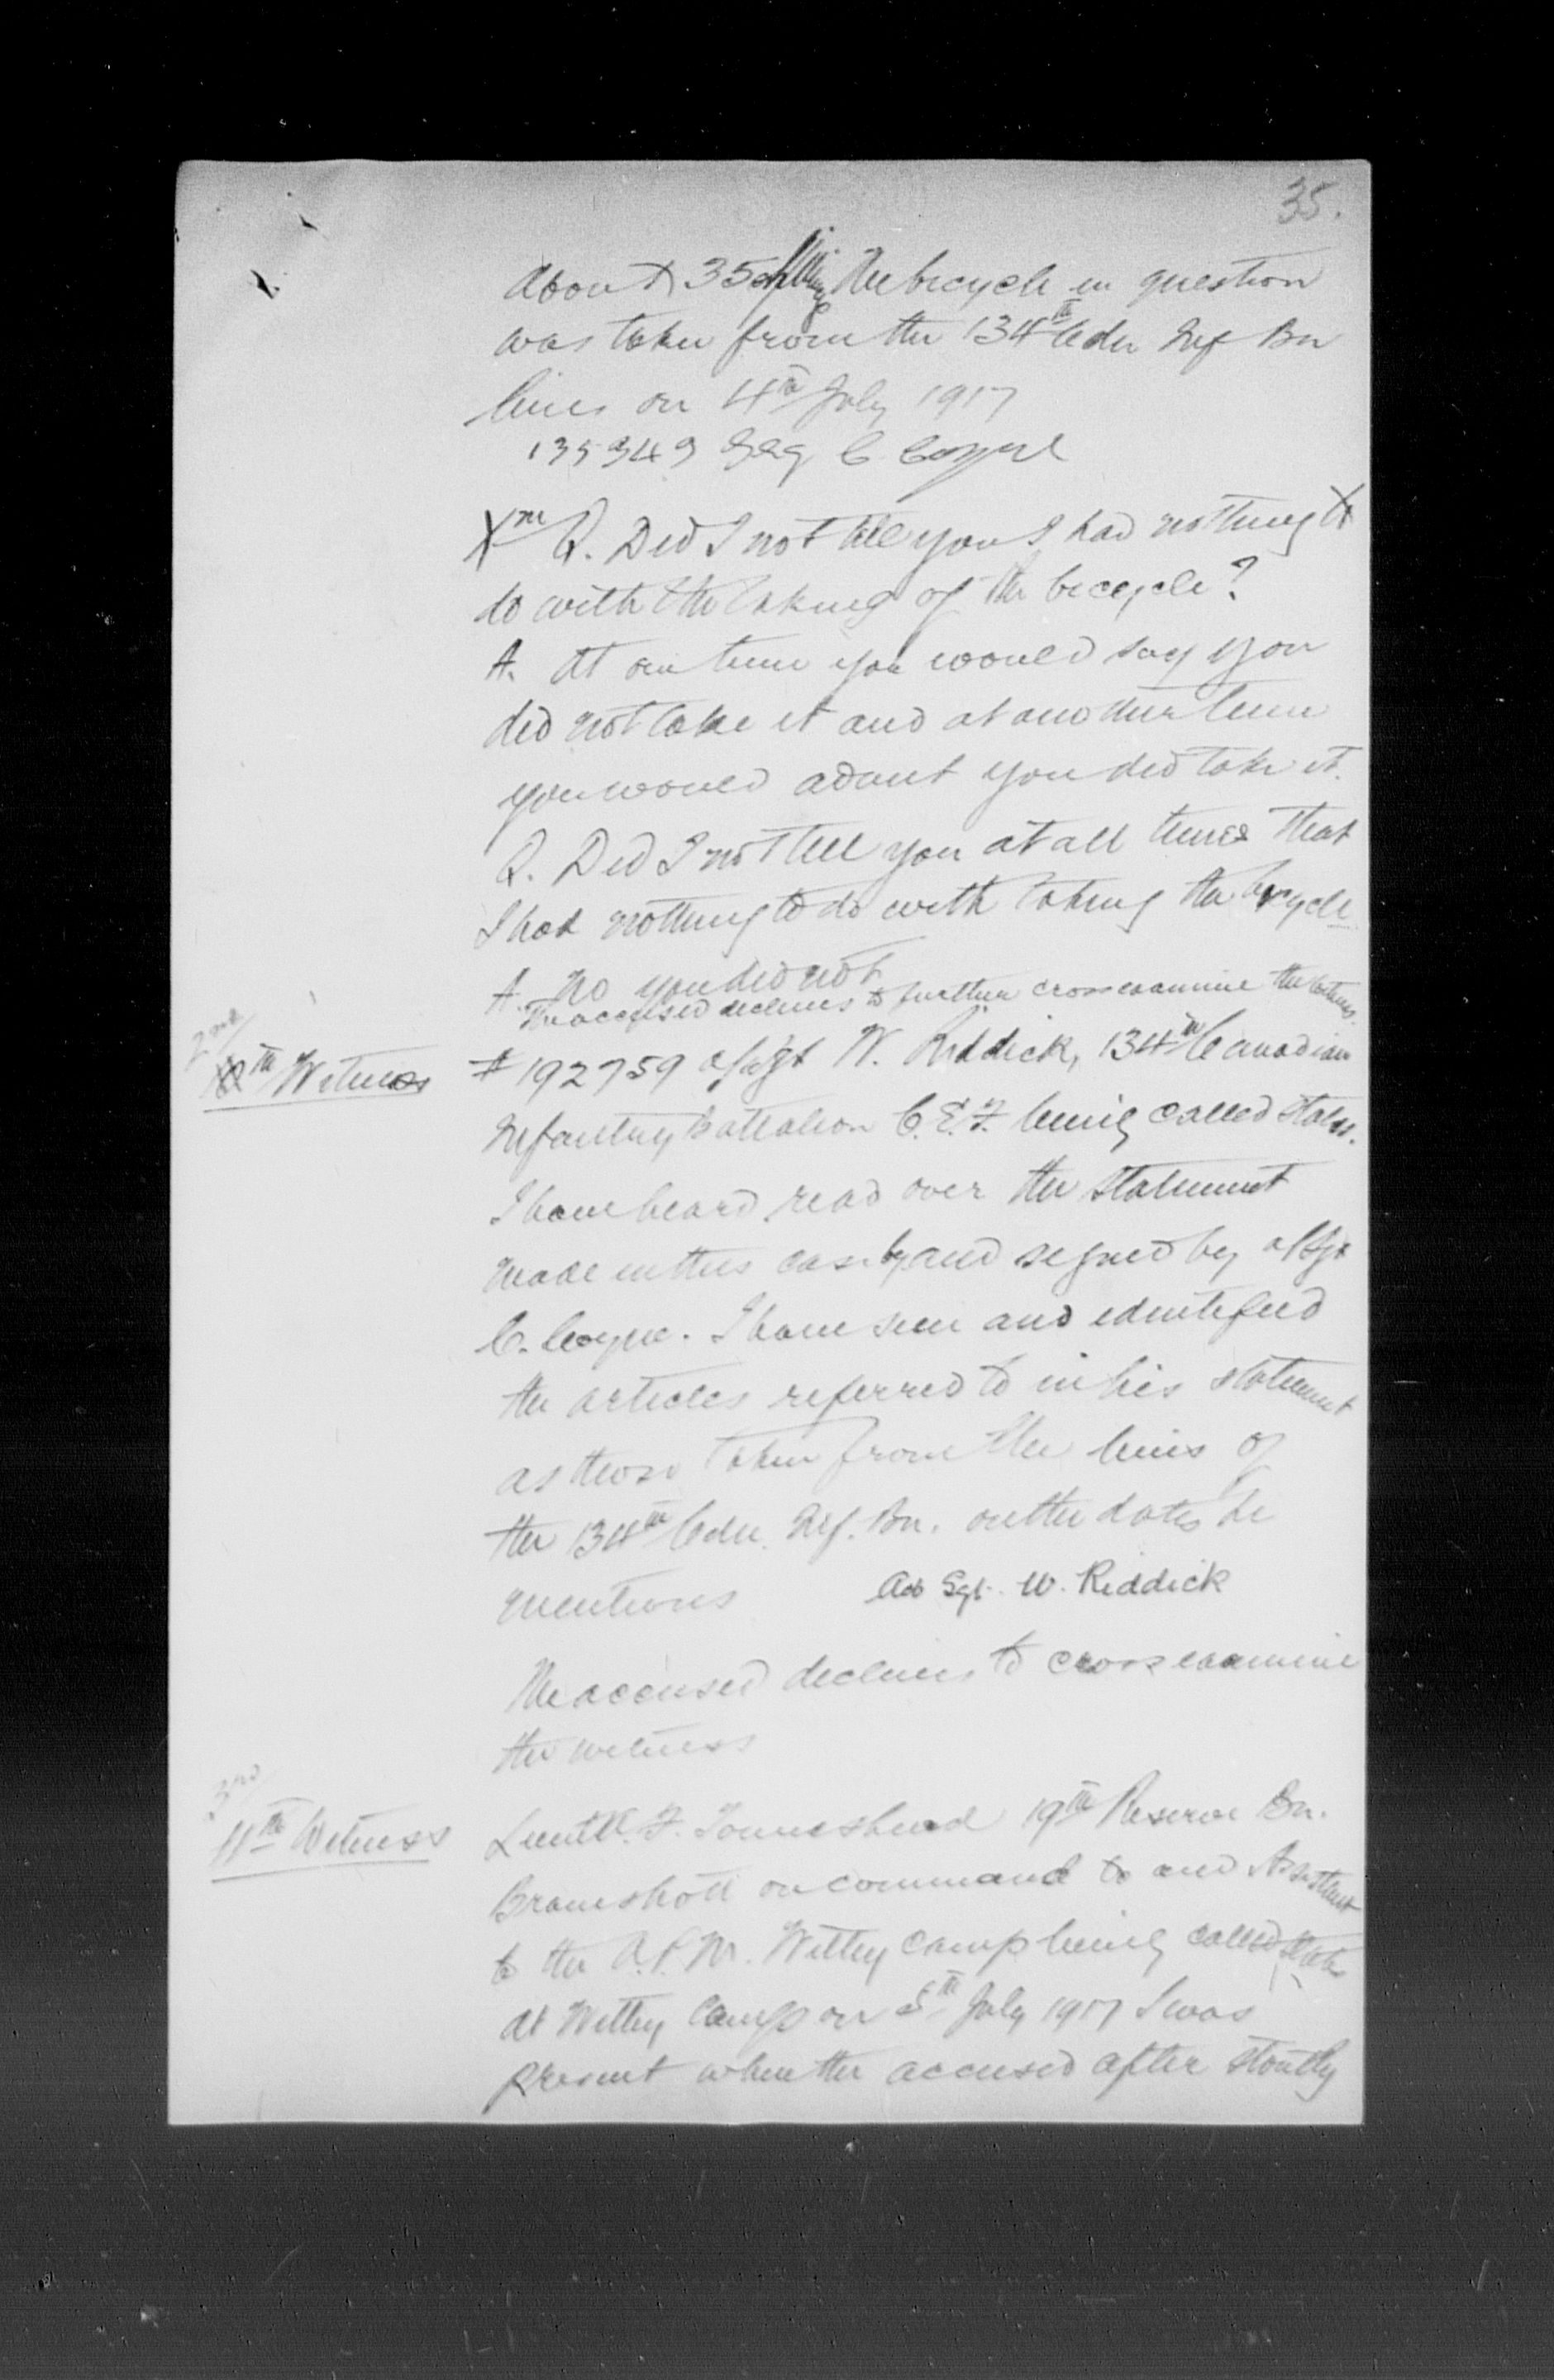 35.
About 35 shillings The bicycle in question
was taken from the 134th Cdn Inf Bn
lines on 4th July 1917
135349 Sgt C Coyne
Xm Q. Did I not tell you I had nothing to
do with the taking of the bicycle?
A. At one time you would say you
did not take it and at another time
you would admit you did take it.
Q. Did I not tell you at all times that
I had nothing to do with taking the bicycle
A. No you did not
The accused declines to further cross examine the witness.
2nd
Witness
# 192759 a/Sgt W. Riddick, 134th Canadian
Infantry Battalion C.E.F. being called states.
I have heard read over the statement
made in this case by and signed by a/Sgt
C. Coyne. I have seen and identified
the articles referred to in his statement
as those taken from the lines of
the 134th Cdn. Inf. Bn. on the dates he
mentions
Act Sgt. W. Riddick
The accused declines to cross examine
the witness
3rd
11th Witness
Lieut F. Townshend 19th Reserve Bn.
Bramshott on command to and Assistant
to the A.P.M. Witley Camp being called states
At Witley Camp on 5th July 1917 I was
present when the accused after stoutly